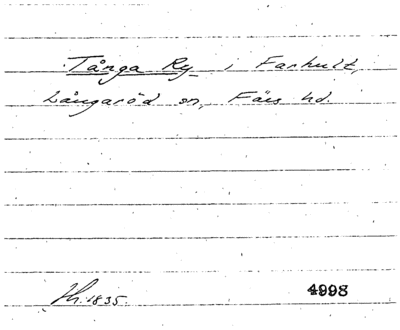 Tånga Ry i Farhult,
Långaröd sn, Färs hd.
Jh. 1835. 4998